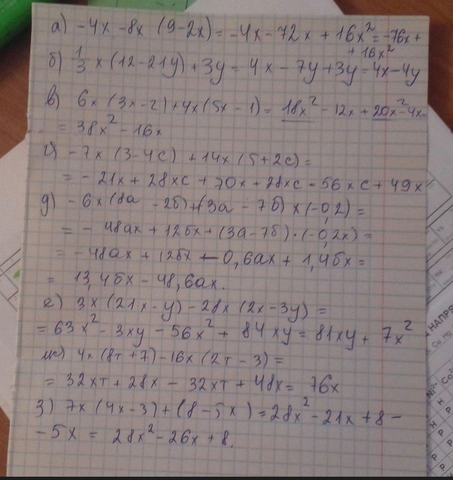 а) -4x -8x (9-2x) = -4x -72x + 16x² = -76x +
+ 16x²
б) 1/3 x (12-21y) + 3y = 4x - 7y + 3y = 4x - 4y
в) 6x (3x-2) + 4x (5x-1) = 18x² - 12x + 20x² - 4x =
= 38x² - 16x
г) -7x (3-4c) + 14x (5+2c) =
= -21x + 28xc + 70x + 28xc = 56xc + 49x
д) -6x (8a - 2б) + (3a - 7б) x (-0,2) =
= -48ax + 12бx + (3a-7б) · (-0,2x) =
= -48ax + 12бx - 0,6ax + 1,4бx =
= 13,4бx - 48,6ax.
е) 3x (21x - y) - 28x (2x - 3y) =
= 63x² - 3xy - 56x² + 84xy = 81xy + 7x²
ж) 4x (8т + 7) - 16x (2т - 3) =
= 32xт + 28x - 32xт + 48x = 76x
з) 7x (4x - 3) + (8 - 5x) = 28x² - 21x + 8 -
- 5x = 28x² - 26x + 8.
НАПР